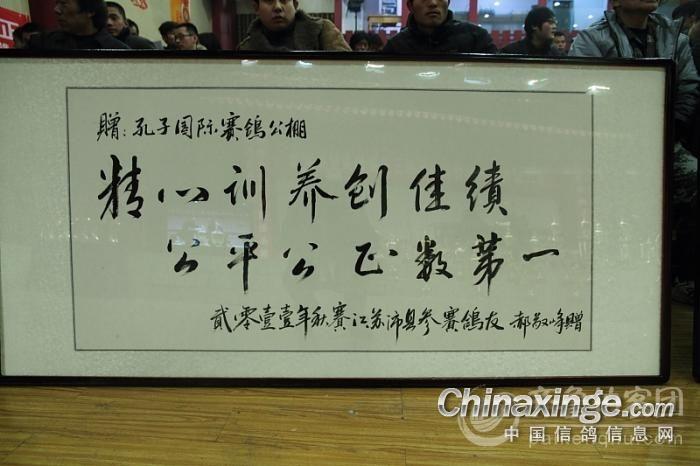 赠:孔子国际赛鸽公棚
精心训养创佳绩
公平公正数第一
贰零壹壹年秋赛江苏沛县参赛鸽友 郝敬峥赠
Chinaxinge.com
中国信鸽信息网